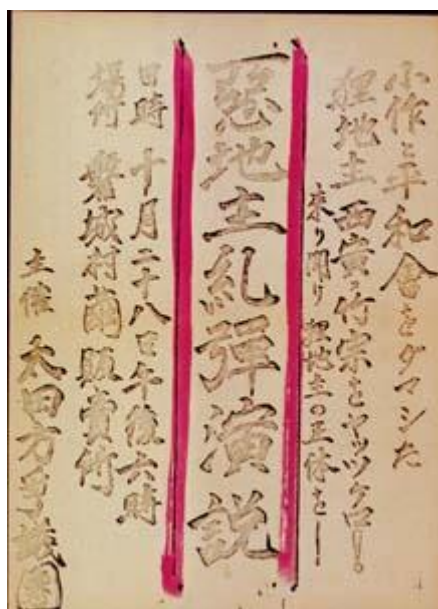 小作と平和舎をダマシた
狸地主西寅、竹宗をヤッツケロ!
来り聞け 狸地主の正体を!
惡地主糺彈演説
日時 十月二十八日午後六時
場所 磐城村南販賣所
主催 太田方争議団